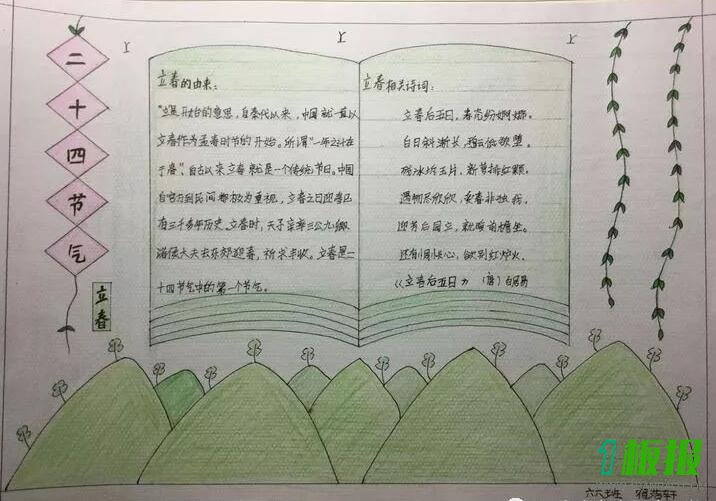 二十四节气
立春
立春的由来:
"立是开始的意思,自秦代以来,中国就一直以
立春作为孟春时节的开始。所谓"一年之计在
于春",自古以来立春就是一个传统节日。中国
自官方到民间都极为重视,立春之日迎春已
有三千多年历史。立春时,天子亲率三公九卿、
诸侯大夫去东郊迎春,祈求丰收。立春是二
十四节气中的第一个节气。
立春相关诗词:
立春后五日,春态纷婀娜。
白日斜渐长,碧云低欲堕。
残冰坼玉片,新萼排红颗。
遇物尽欣欣,爱春非独我。
迎芳后园立,就暖前檐坐。
还有惆怅心,欲别红炉火。
《立春后五日》 (唐) 白居易
六六班
板报